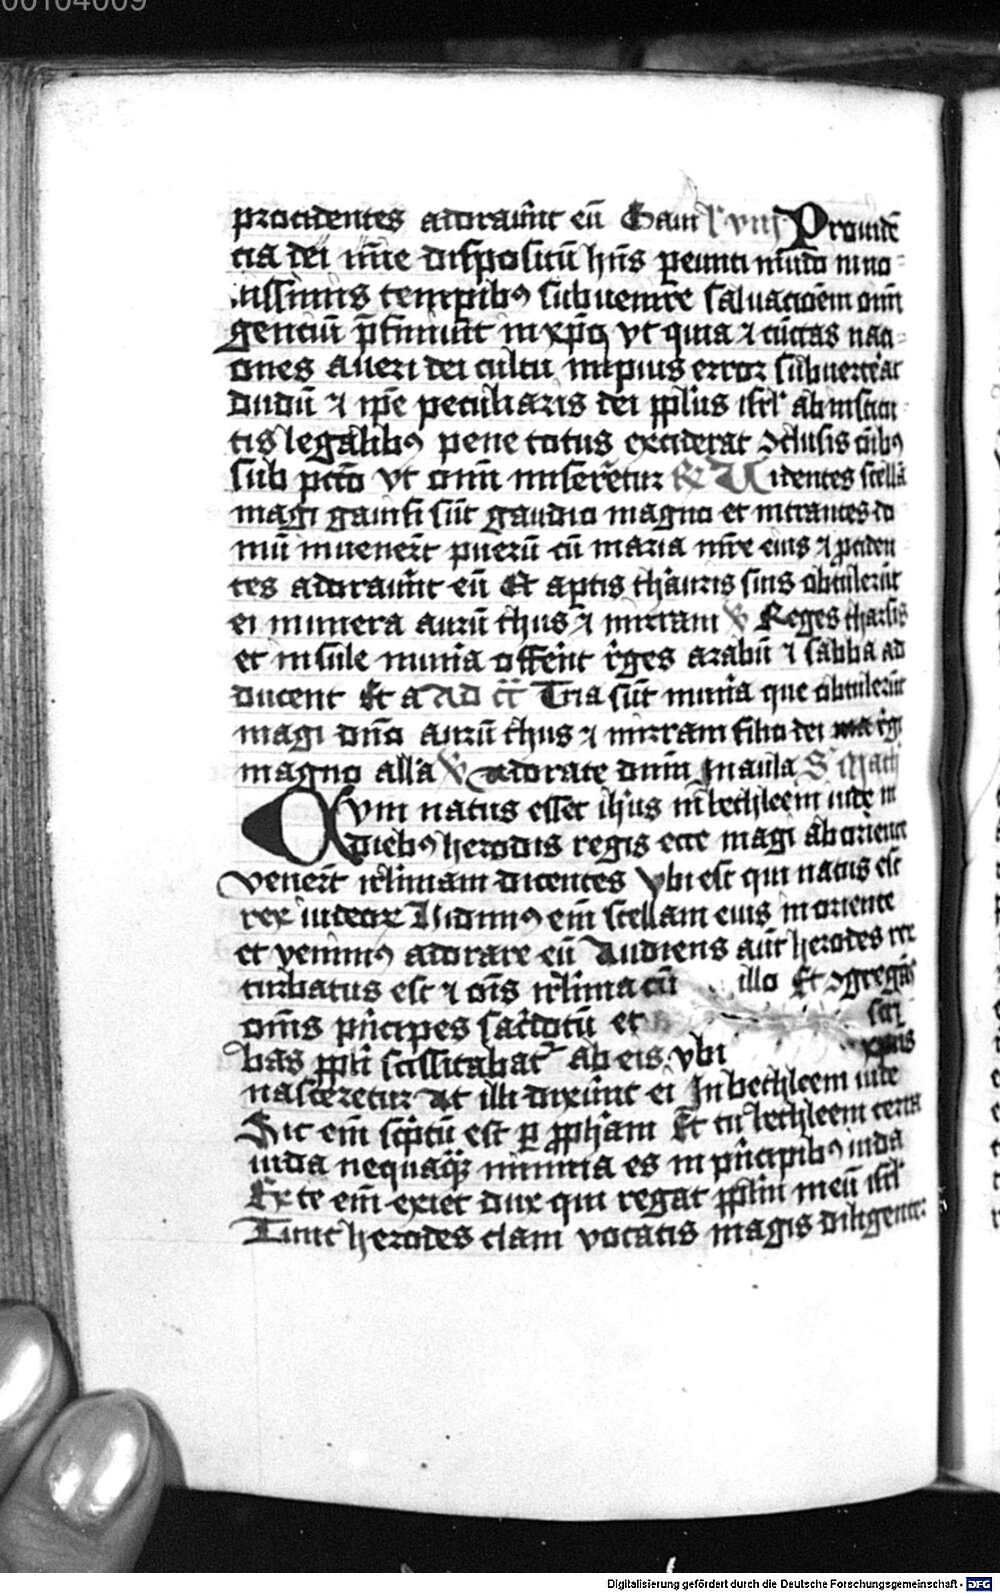 00104009
procidentes adorauer̄t eū Gaui l' viij Prouidē
cia dei mīe disposicū hn̄s peunti mūdo in no
uissimis tempib9 subuenire saluacōem om̄
genciū p̄finiuit in xp̄o vt quia ⁊ cūctas naci
ones a ueri dei cultu impius error subuerterat
dudū ⁊ ip̄e peculiaris dei pplūs isrl' ab institu
tis legalib9 pene totus exciderat ↄclusis oīib9
sub pctō vt om̄ miseretur R Uidentes stellā
magi gauisi sūt gaudio magno et intrantes do
mū inuener̄t puerū cū maria mr̄e eius ⁊ pciden
tes adorauer̄t eū Et aptis thauris suis obtulerūt
ei munera aurū thus ⁊ mirram V Reges tharsis
et insule mun̄a offer̄nt r̄ges arabū ⁊ sabba ad
ducent Et a AD cī Tria sūt mun̄a que obtulerūt
magi dn̄o aurū thus ⁊ mirram filio dei r̄gi
magno alla V Adorate dnm̄ In aula S' Math
Cvm natus esset ih̄us in bethleem iude in
dieb9 herodis regis ecce magi ab orient
vener̄t irlimam dicentes Vbi est qui natus est
rex iudeoꝝ Vidim9 em̄ stellam eius in oriente
et venim9 adorare eū Audiens aūt herodes rex
turbatus est ⁊ om̄s irlima cū illo Et ↄgregās
om̄s pn̄cipes sac̄dotū et scri
bas ppli scissitabat' ab eis vbi xpūs
nasceretur At illi dixer̄nt ei In bethleem iude
Sic em̄ sc̄ptū est p pph̄am Et tu bethleem terra
iuda nequaq̄ minima es in pn̄cipib9 iuda
Ex te em̄ exiet dux qui regat pplm̄ meū isrl'
Tunc herodes clam vocatis magis diligenter
Digitalisierung gefördert durch die Deutsche Forschungsgemeinschaft - DFG